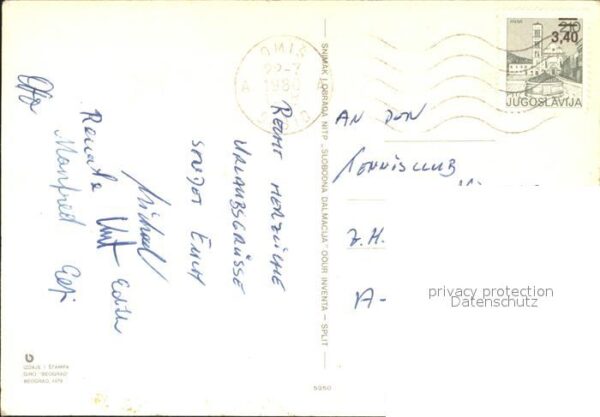 RECHT HERZLICHE
URLAUBSGRÜSSE
SENDET EUCH
Michael
Edith
Renate
Manfred
AN DEN
TENNISCLUB
Z.H.
A-
OMIŠ
22-7
1980
OMIŠ
HVAR
2,10
3,40
JUGOSLAVIJA
SNIMAK I OBRADA NITP „SLOBODNA DALMACIJA" OOUR INVENTA — SPLIT
IZDAJE I ŠTAMPA
BEOGRAD 1979
5250
privacy protection
Datenschutz